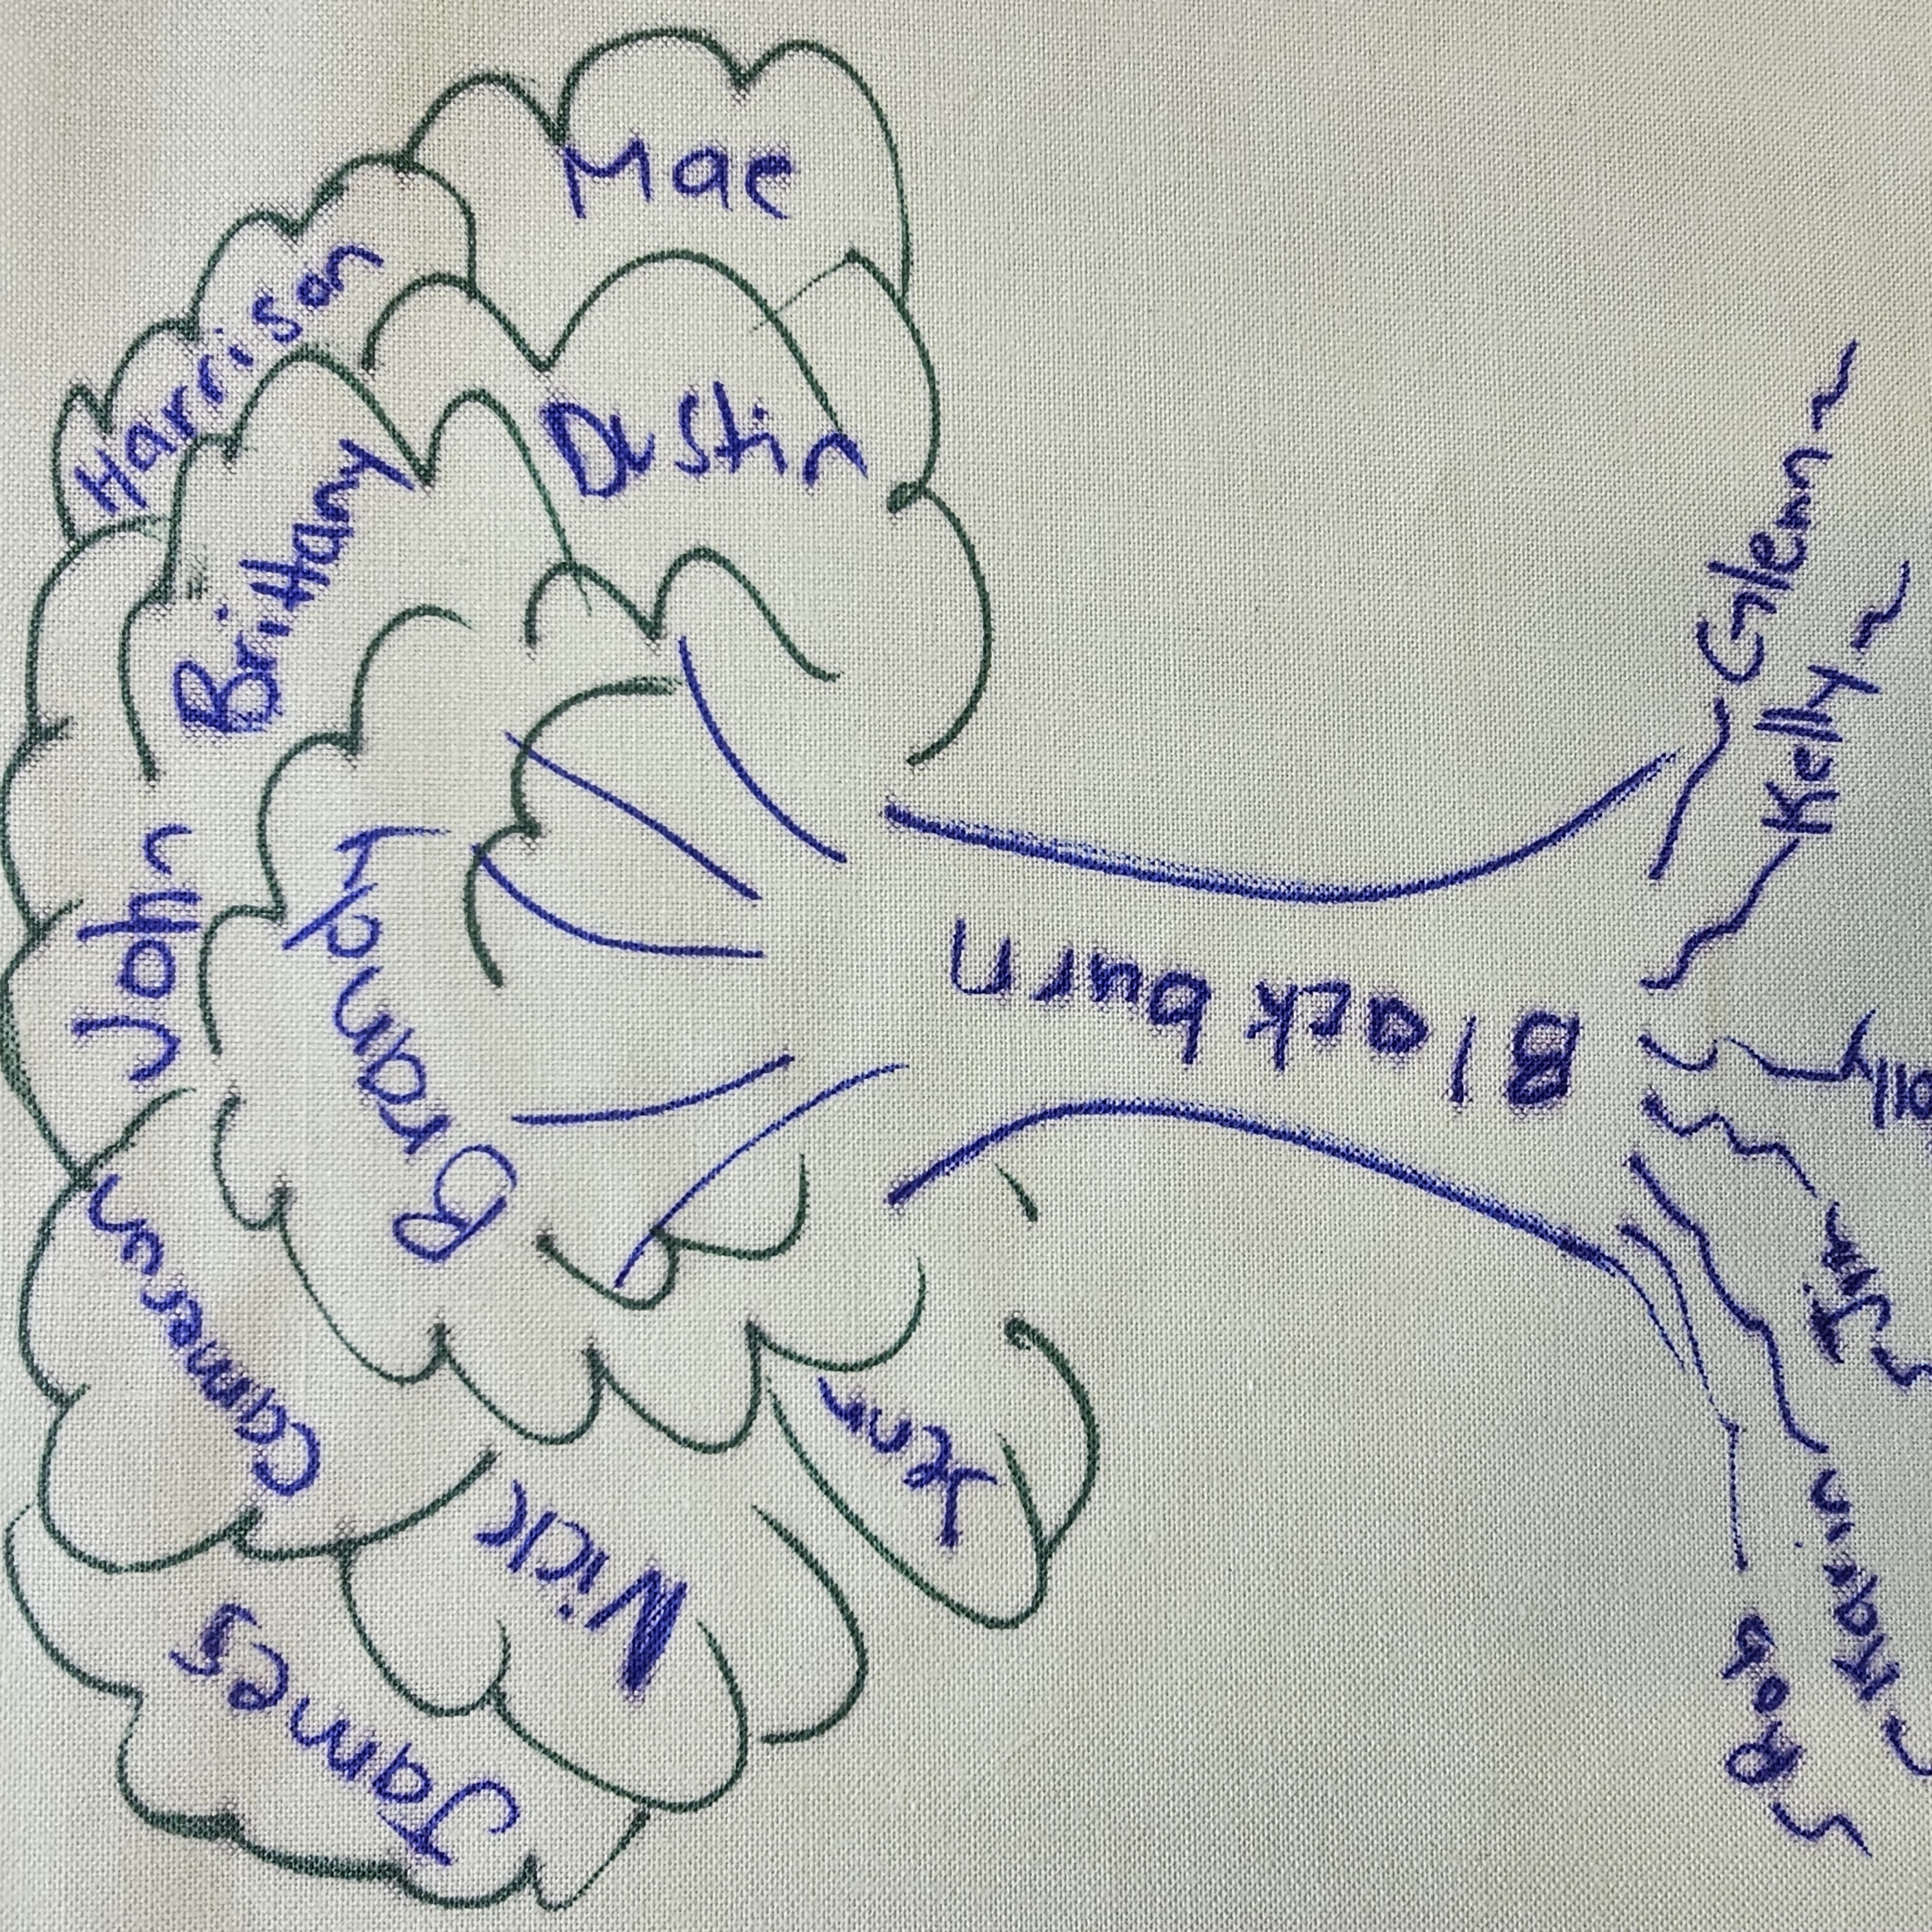 Mae
Harrison
Dustin
Brittany
John
Brandy
Cameron
Nick
Jenn
James
Blackburn
Glenn
Kelly
olly
Jim
Rob